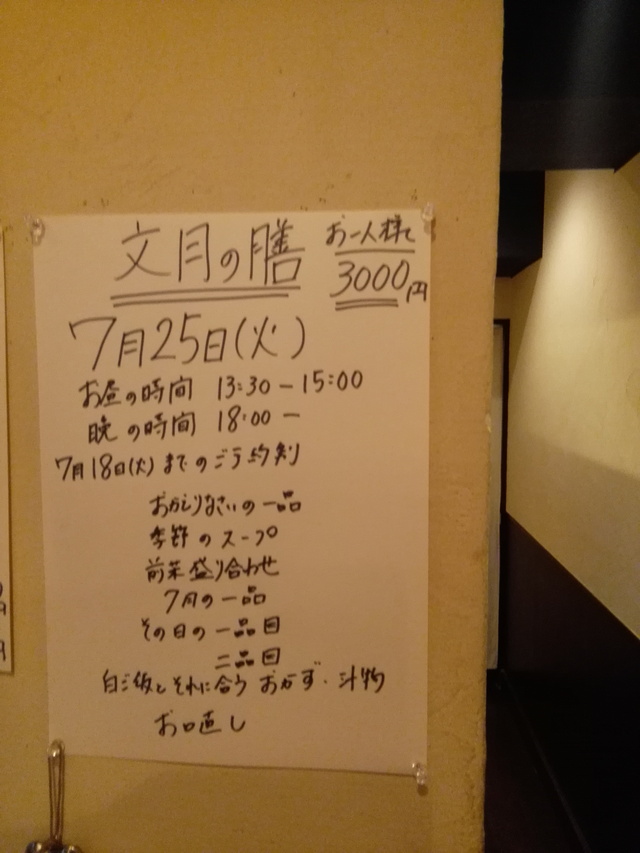 文月の膳
お一人様
3000円
7月25日(火)
お昼の時間 13:30-15:00
晩の時間 18:00-
7月18日(火)までのご予約制
おかえりなさいの一品
季節のスープ
前菜盛り合わせ
7月の一品
その日の一品目
二品目
白ご飯とそれに合うおかず・汁物
お口直し